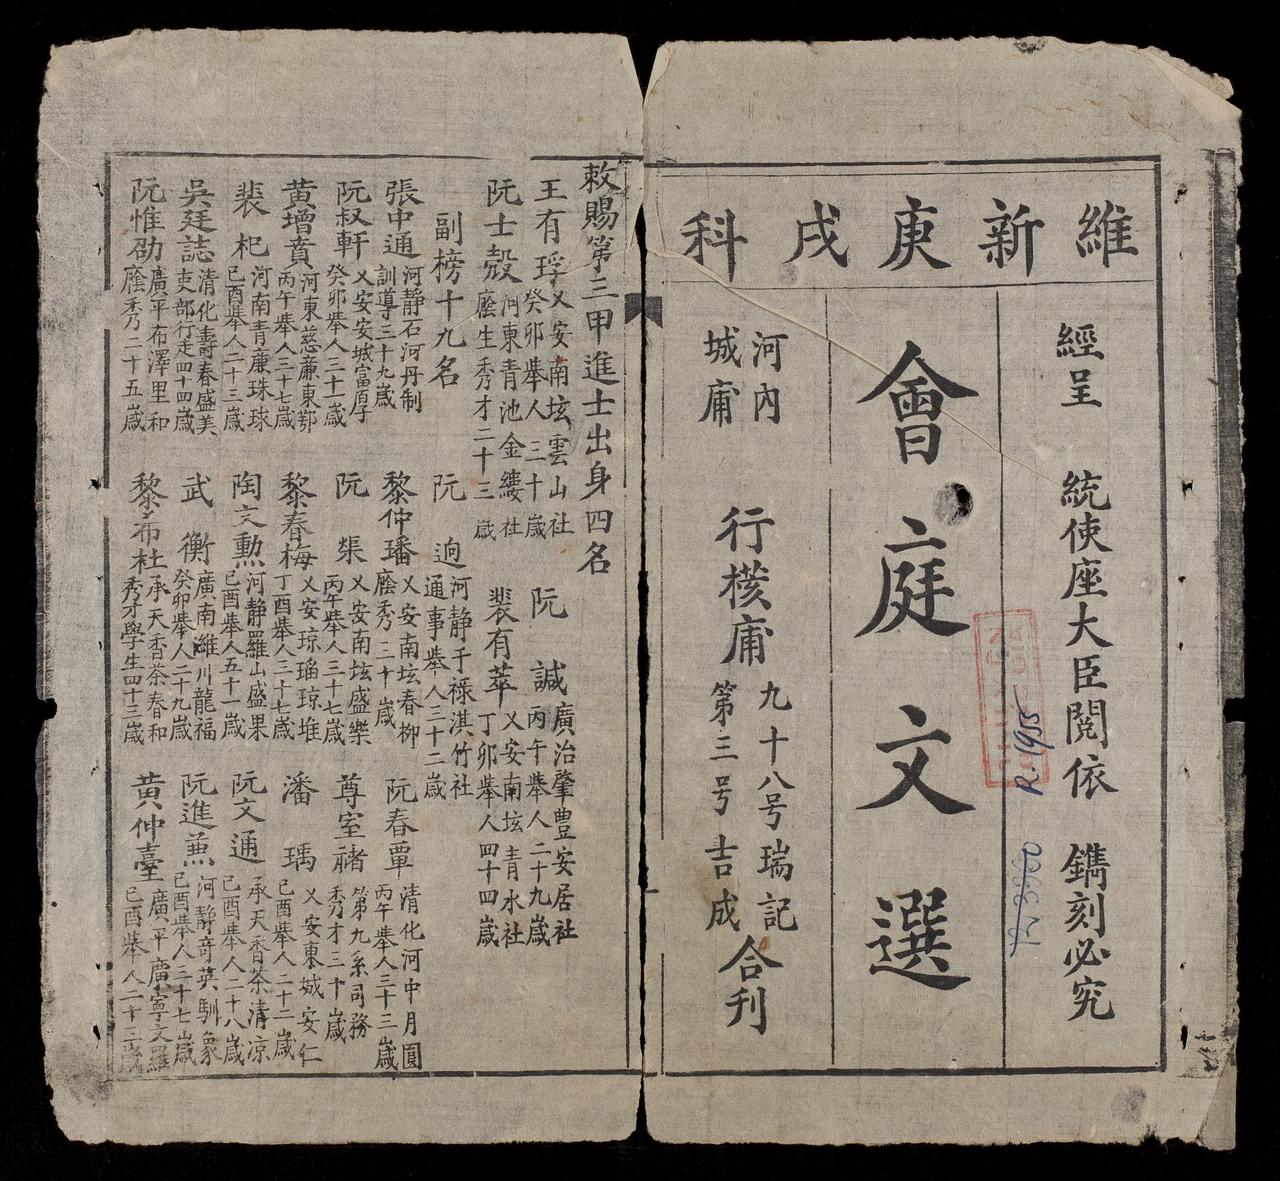 維新庚戌科
經呈 統使座大臣閱依 鐫刻必究
會庭文選
河內
城庸
行 庸
九十八号瑞記
第三号吉成
合刊
R.1955
敕賜第三甲進士出身四名
王有 乂安南坛雲山社
癸卯舉人三十歲
阮 諴 廣治肇豊安居社
丙午舉人二十九歲
阮士 河東青池金縷社
廕生秀才二十三歲
裴有萃 乂安南坛青水社
丁卯舉人四十四歲
副榜十九名
阮 逈 河静干祿淇竹社
通事舉人三十二歲
阮春覃 清化河中月圓
丙午舉人三十三歲
張中通 河静石河丹制
訓導三十九歲
黎仲璠 乂安南坛春柳
廕秀三十歲
尊室 第九系司務
秀才三十歲
阮叔軒 乂安安城富
癸卯舉人三十一歲
阮 榘 乂安南坛盛樂
丙午舉人三十七歲
潘 瑀 乂安東城安仁
己酉舉人二十二歲
黃增賁 河東慈廉東鄂
丙午舉人三十七歲
黎春梅 乂安琼瑤琼堆
丁酉舉人三十七歲
阮文通 承天香茶清凉
己酉舉人二十八歲
裴 杞 河南青廉珠球
己酉舉人二十三歲
陶文勲 河静羅山盛果
己酉舉人五十一歲
阮進 河静竒英馴象
己酉舉人三十七歲
吳廷誌 清化壽春盛美
吏部行走四十四歲
武 衡 廣南濰川龍福
癸卯舉人二十九歲
黃仲臺 廣平廣寧文羅
己酉舉人二十三歲
阮惟劭 廣平布澤里和
廕秀二十五歲
黎布杜 承天香茶春和
秀才學生四十三歲